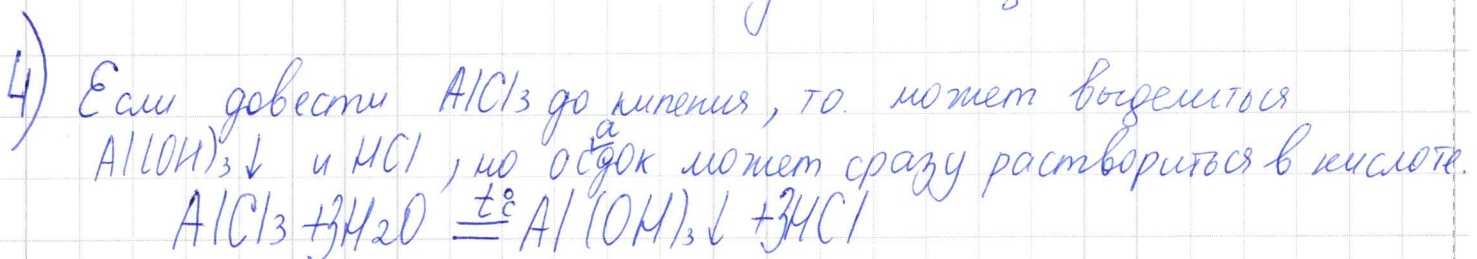 4) Если довести AlCl3 до кипения, то может выделиться
Al(OH)3↓ и HCl, но осадок может сразу раствориться в кислоте.
AlCl3 + 3H2O =t°c= Al(OH)3↓ + 3HCl